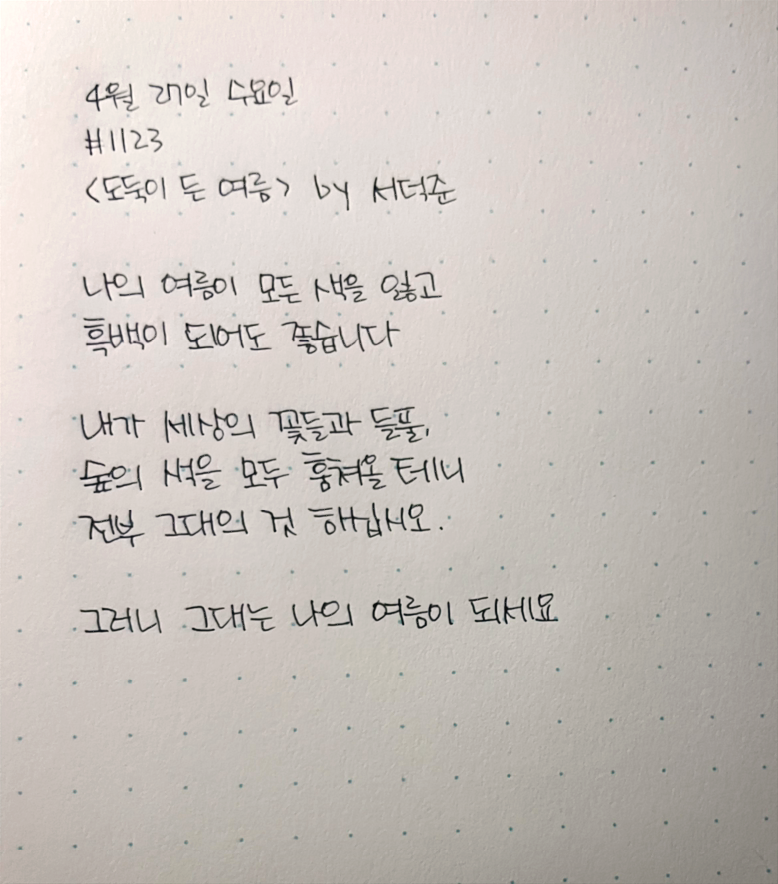 4월 27일 수요일
#1123
<도둑이 든 여름> by 서덕준
나의 여름이 모든 색을 잃고
흑백이 되어도 좋습니다
내가 세상의 꽃들과 들풀,
숲의 색을 모두 훔쳐올 테니
전부 그대의 것 하십시오.
그러니 그대는 나의 여름이 되세요